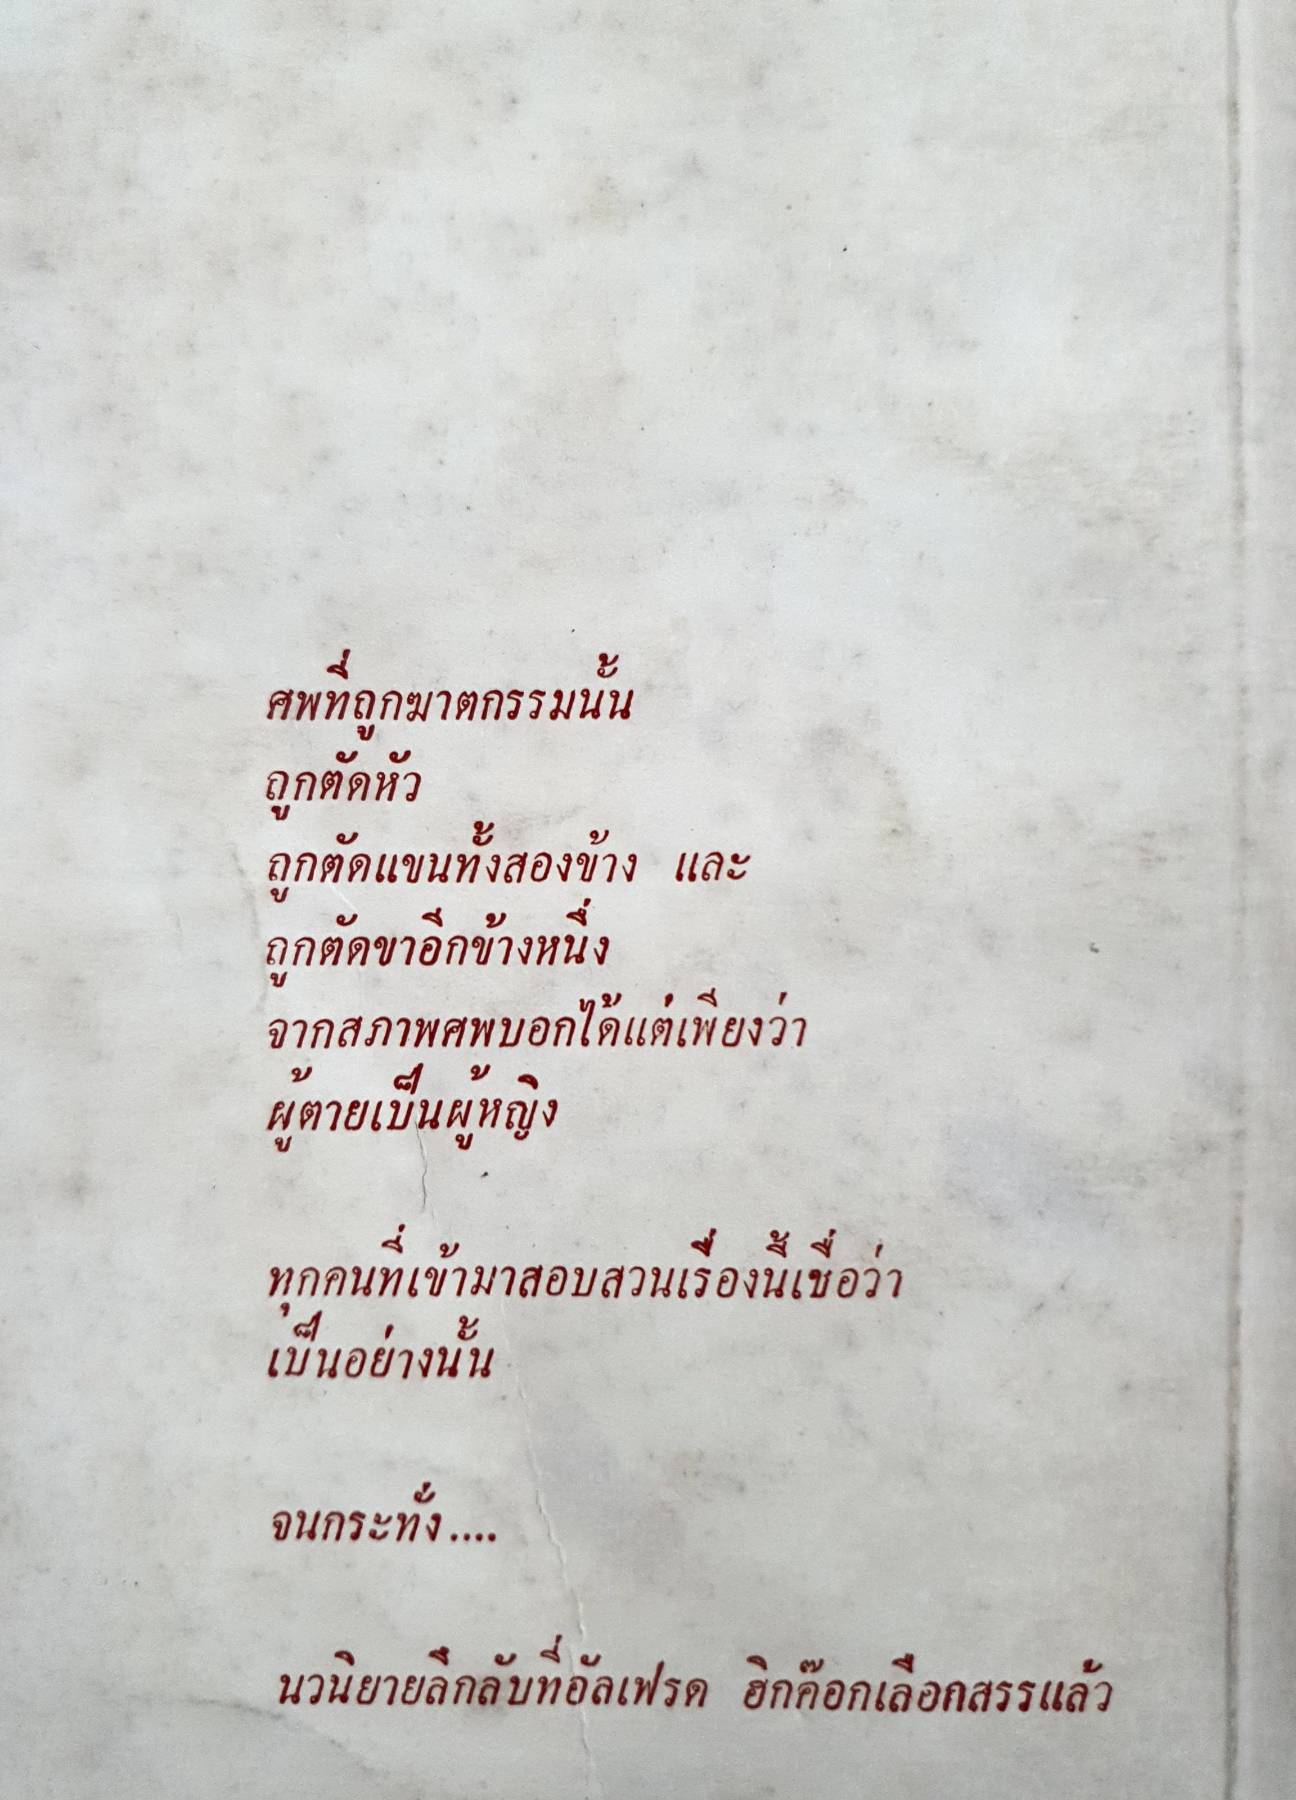 ศพที่ถูกฆาตกรรมนั้น
ถูกตัดหัว
ถูกตัดแขนทั้งสองข้าง และ
ถูกตัดขาอีกข้างหนึ่ง
จากสภาพศพบอกได้แต่เพียงว่า
ผู้ตายเป็นผู้หญิง
ทุกคนที่เข้ามาสอบสวนเรื่องนี้เชื่อว่า
เป็นอย่างนั้น
จนกระทั่ง....
นวนิยายลึกลับที่อัลเฟรด ฮิกค๊อกเลือกสรรแล้ว